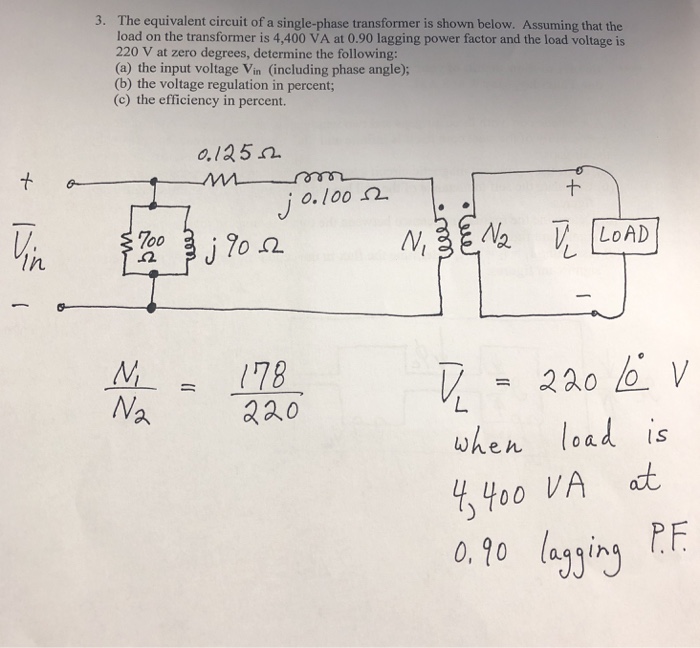 3. The equivalent circuit of a single-phase transformer is shown below. Assuming that the
load on the transformer is 4,400 VA at 0.90 lagging power factor and the load voltage is
220 V at zero degrees, determine the following:
(a) the input voltage Vin (including phase angle);
(b) the voltage regulation in percent;
(c) the efficiency in percent.
0.125 Ω
j 0.100 Ω
+
+
V̅in
700
Ω
j 90 Ω
N₁
N₂
V̅L
LOAD
−
−
N₁/N₂ = 178/220
V̅L = 220 ∠0° V
when load is
4,400 VA at
0.90 lagging P.F.